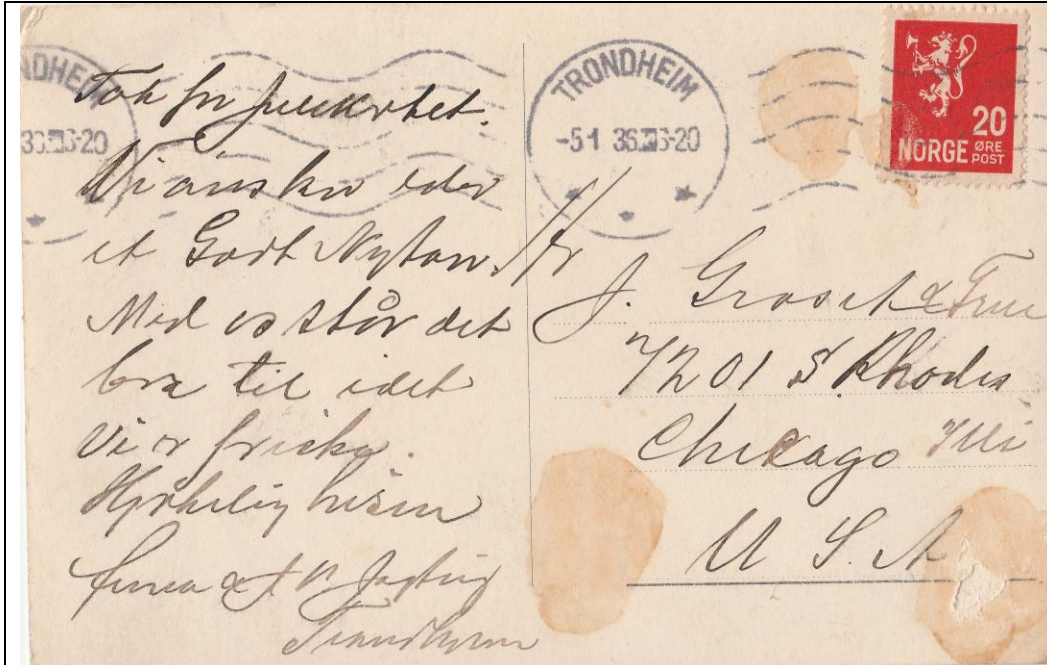 Tak for julekortet.
Vi ønsker eder
et Godt Nyttaar.
Med os står det
bra til idet
vi er friske.
Hjertelig hilsen
Trondhjem
TRONDHEIM
-51 36 6-20
NORGE 20 ØRE POST
Hr
J. Groset & Frue
7201 S Rhodes
Chikago Illi
U S. A